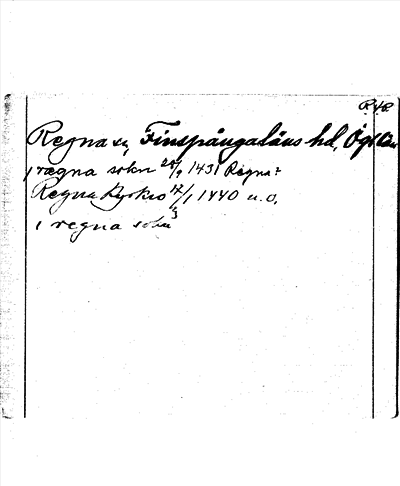 R4R
Regna sn, Finspångaläns hd, Ög
i rægna sokn 25/9 1431 Regna?
Regna Kyrkio 17/1 1440 u.o.
i regna sokn